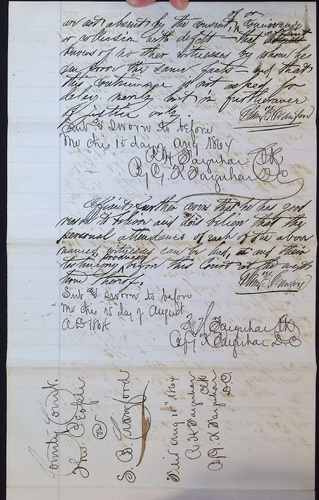 of or
are not absent by the consent or connivance
or collusion with defts — that affiant
knows of no other witnesses by whom he
can prove the same facts — and that
this continuance is not asked for
delay merely but in furtherance
of justice only
Sub & Sworn to before
me this 15 day Aug 1864
A H Farquhar Clk
By G X Farquhar D.C.
Affiant further avers that he has good
reason to believe and does believe that the
personal attendance of each of the above
named witnesses can be had, or
testimony produced before this Court at the next
term thereof.
Sub & sworn to before
me this 15 day of August
A.D. 1864
A H Farquhar Clk
By G X Farquhar D.C.
County Court
The People
vs
S. B. Crawford
Filed Aug 15th 1864
A H Farquhar
Clk
By G X Farquhar
D.C.